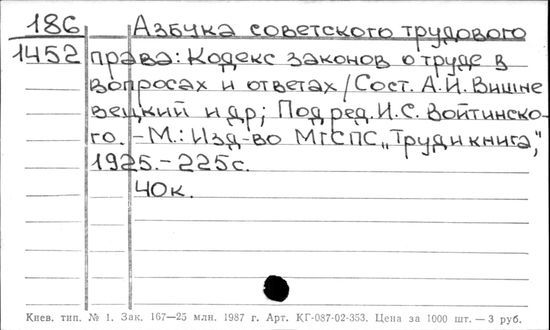 186 Азбука советского трудового
1452 права: Кодекс законов о труде в
вопросах и ответах / Сост. А.И. Вишне
вецкий и др; Под ред. И.С. Войтинско-
го. - М.: Изд-во МГСПС „Труд и книга",
1925. - 225 с.
40к.
Киев. тип. № 1. Зак. 167—25 млн. 1987 г. Арт. КГ-087-02-353. Цена за 1000 шт. — 3 руб.